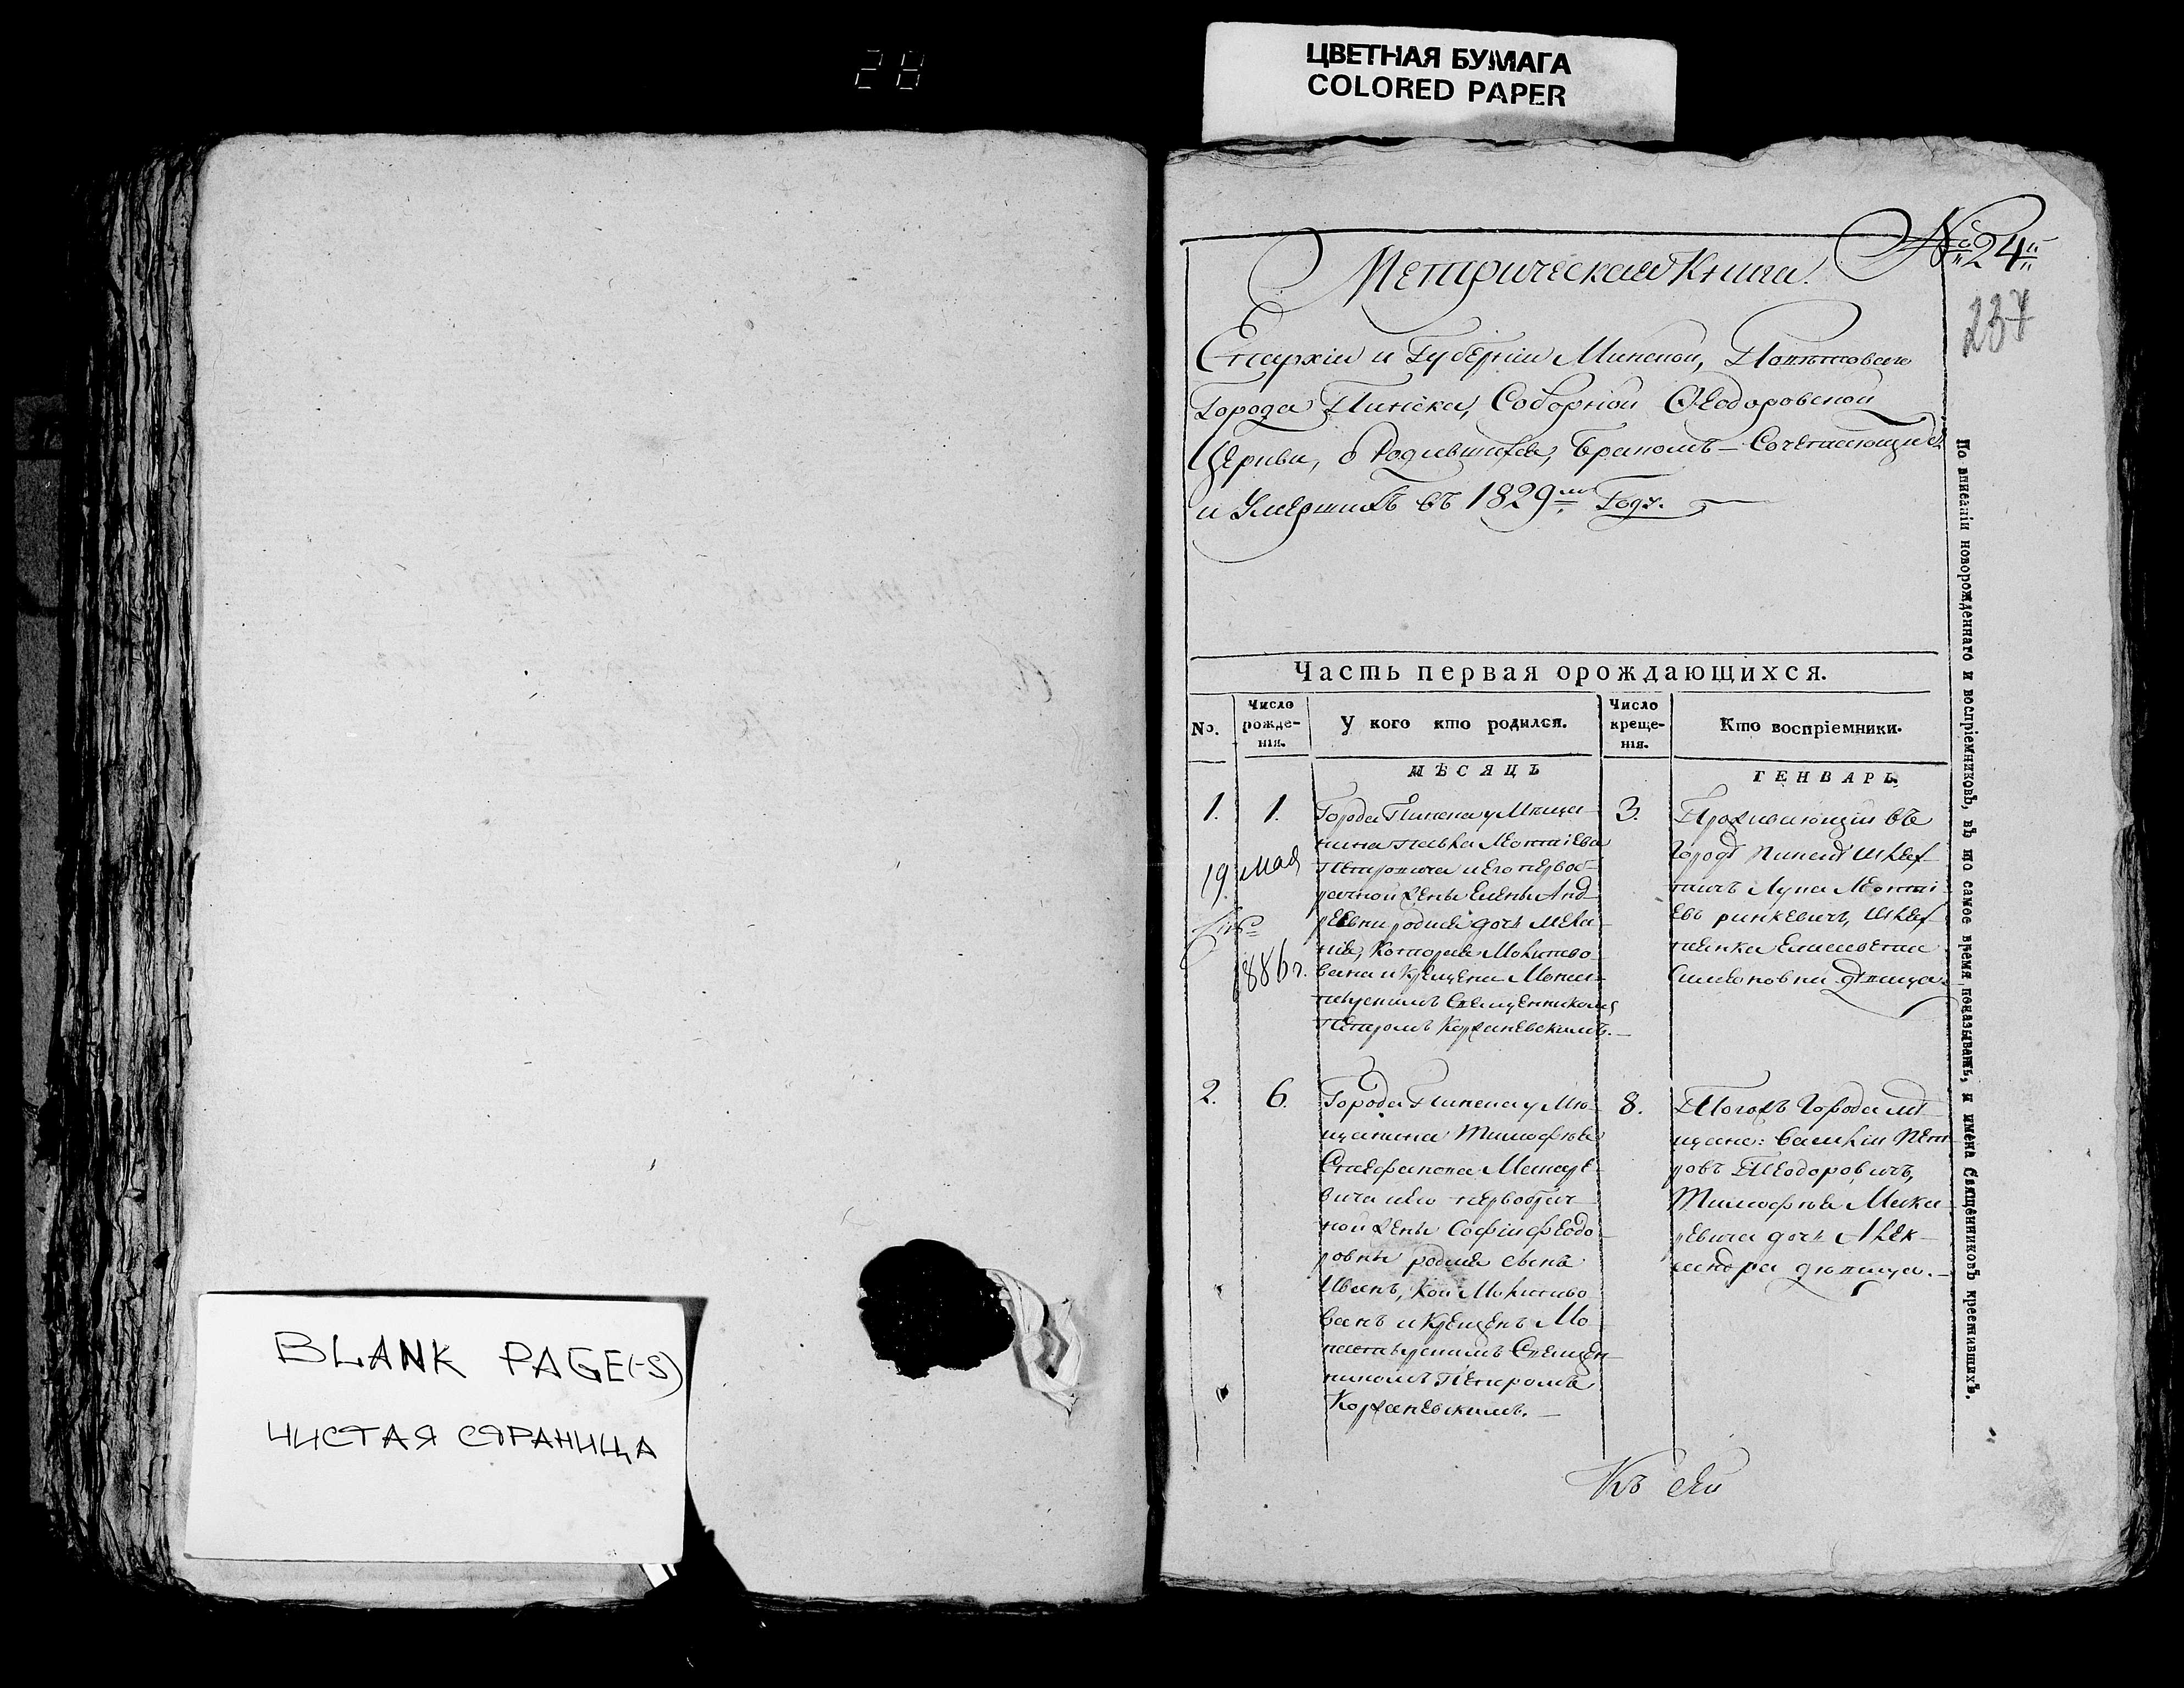 28
ЦВЕТНАЯ БУМАГА
COLORED PAPER
BLANK PAGE(-S)
ЧИСТАЯ СТРАНИЦА
№ 24й
237
Метрическая Книга.
Епархіи и Губерніи Минской,
Города Пинска, Соборной Ѳеодоровской
Церкви, о Родившихся, Бракомъ-Сочетающихся
и Умершихъ въ 1829мъ Годѣ.
Часть первая орождающихся.
No.
Число рожде- нія.
У кого кто родился.
Число креще- нія.
Кто воспріемники.
МѢСЯЦЪ
ГЕНВАРЬ.
1.
1.
Города Пинска у Мѣща-
нина Павла
Петровича и его первоб-
рачной жены Елены Анд-
реевны родися дочь Мела-
нія, Которая Молитво-
вана и Крещена Монас-
тырскимъ Священникомъ
Петромъ Коржаневскимъ.
3.
Проживающій въ
Городѣ Пинскѣ Шлях-
тичъ Лука
евъ ринкевичъ, Шлях-
тянка Елисавета
Симеоновна дѣвица.
19 мая
1886 г.
2.
6.
Города Пинска у Мѣ-
щанина Тимофея
Стефанова Макаре-
вича и его первобрач-
ной жены Софіи Феодо-
ровны родися сынъ
Иванъ, Кой Молитво-
ванъ и Крещенъ Мо-
настырскимъ Священ-
никомъ Петромъ
Коржаневскимъ.
8.
Тогожъ Города мѣ-
щане: Василій Пет-
ровъ Теодоровичъ,
Тимофея Мака-
ревича дочь Алек-
сандра дѣвица.
Къ сей
По вписаніи новорожденнаго и воспріемниковъ, въ то самое время показывать, и имена Священниковъ крестившихъ.